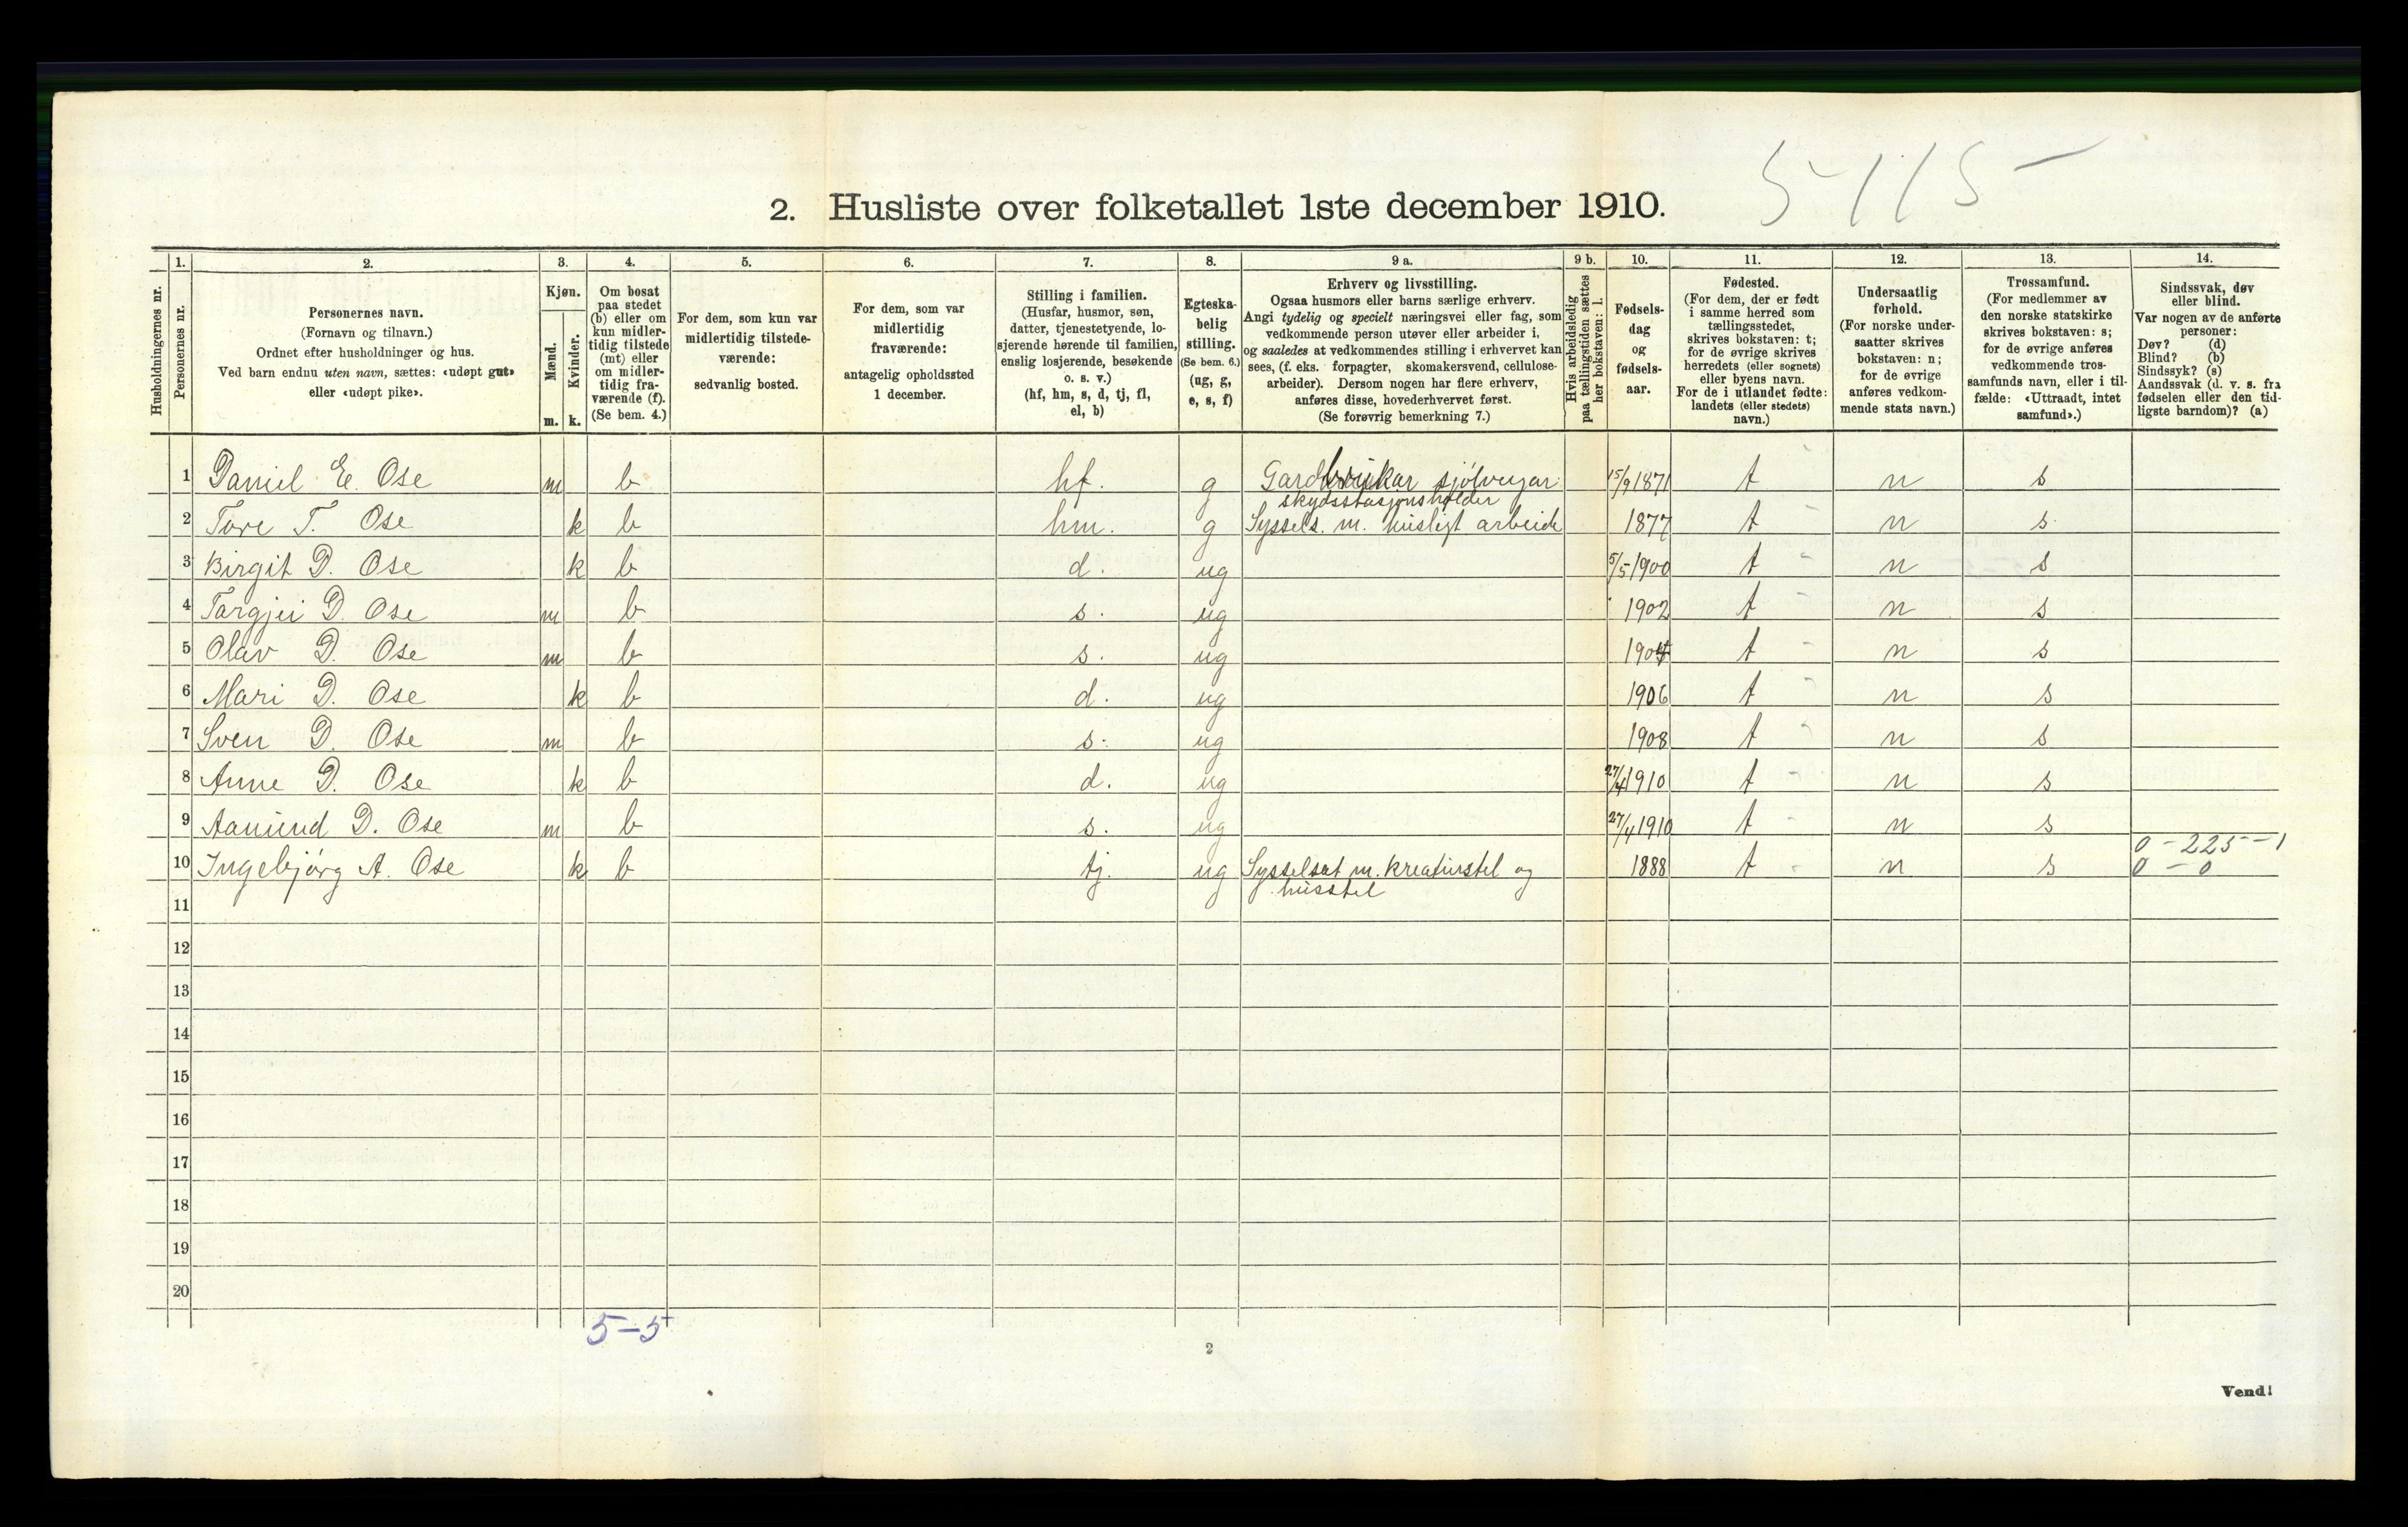 5115-
2. Husliste over folketallet 1ste december 1910.
Husholdningernes nr.
1.
Personernes nr.
2.
Personernes navn.
(Fornavn og tilnavn.)
Ordnet efter husholdninger og hus.
Ved barn endnu uten navn, sættes: «udøpt gut»
eller «udøpt pike».
3.
Kjøn.
Mænd.
Kvinder.
m. k.
4.
Om bosat
paa stedet
(b) eller om
kun midler-
tidig tilstede
(mt) eller
om midler-
tidig fra-
værende (f).
(Se bem. 4.)
5.
For dem, som kun var
midlertidig tilstede-
værende:
sedvanlig bosted.
6.
For dem, som var
midlertidig
fraværende:
antagelig opholdssted
1 december.
7.
Stilling i familien.
(Husfar, husmor, søn,
datter, tjenestetyende, lo-
sjerende hørende til familien,
enslig losjerende, besøkende
o. s. v.)
(hf, hm, s, d, tj, fl,
el, b)
8.
Egteska-
belig
stilling.
(Se bem. 6.)
(ug, g,
e, s, f)
9 a.
Erhverv og livsstilling.
Ogsaa husmors eller barns særlige erhverv.
Angi tydelig og specielt næringsvei eller fag, som
vedkommende person utøver eller arbeider i,
og saaledes at vedkommendes stilling i erhvervet kan
sees, (f. eks. forpagter, skomakersvend, cellulose-
arbeider). Dersom nogen har flere erhverv,
anføres disse, hovederhvervet først.
(Se forøvrig bemerkning 7.)
9 b.
Hvis arbeidsledig
paa tællingstiden sættes
her bokstaven: l.
10.
Fødsels-
dag
og
fødsels-
aar.
11.
Fødested.
(For dem, der er født
i samme herred som
tællingsstedet,
skrives bokstaven: t;
for de øvrige skrives
herredets (eller sognets)
eller byens navn.
For de i utlandet fødte:
landets (eller stedets)
navn.)
12.
Undersaatlig
forhold.
(For norske under-
saatter skrives
bokstaven: n;
for de øvrige
anføres vedkom-
mende stats navn.)
13.
Trossamfund.
(For medlemmer av
den norske statskirke
skrives bokstaven: s;
for de øvrige anføres
vedkommende tros-
samfunds navn, eller i til-
fælde: «Uttraadt, intet
samfund».)
14.
Sindssvak, døv
eller blind.
Var nogen av de anførte
personer:
Døv? (d)
Blind? (b)
Sindssyk? (s)
Aandssvak (d. v. s. fra
fødselen eller den tid-
ligste barndom)? (a)
1 Daniel E. Ose m b hf. g Gardbrukar sjölveigar 15/9 1871 t n s
skydsstasjonsholder
2 Tore T. Ose k b hm. g Syssels. m. husligt arbeide 1877 t n s
3 Birgit D. Ose k b d. ug 5/5 1900 t n s
4 Targjei D. Ose m b s. ug 1902 t n s
5 Olav D. Ose m b s. ug 1904 t n s
6 Mari D. Ose k b d. ug 1906 t n s
7 Sven D. Ose m b s. ug 1908 t n s
8 Anne D. Ose k b d. ug 27/4 1910 t n s
9 Aamund D. Ose m b s. ug 27/4 1910 t n s
0-225-1
10 Ingebjörg A. Ose k b tj. ug Sysselsat m. kreaturstel og 1888 t n s 0-0
husstel
11
12
13
14
15
16
17
18
19
20
5-5
2
Vend!